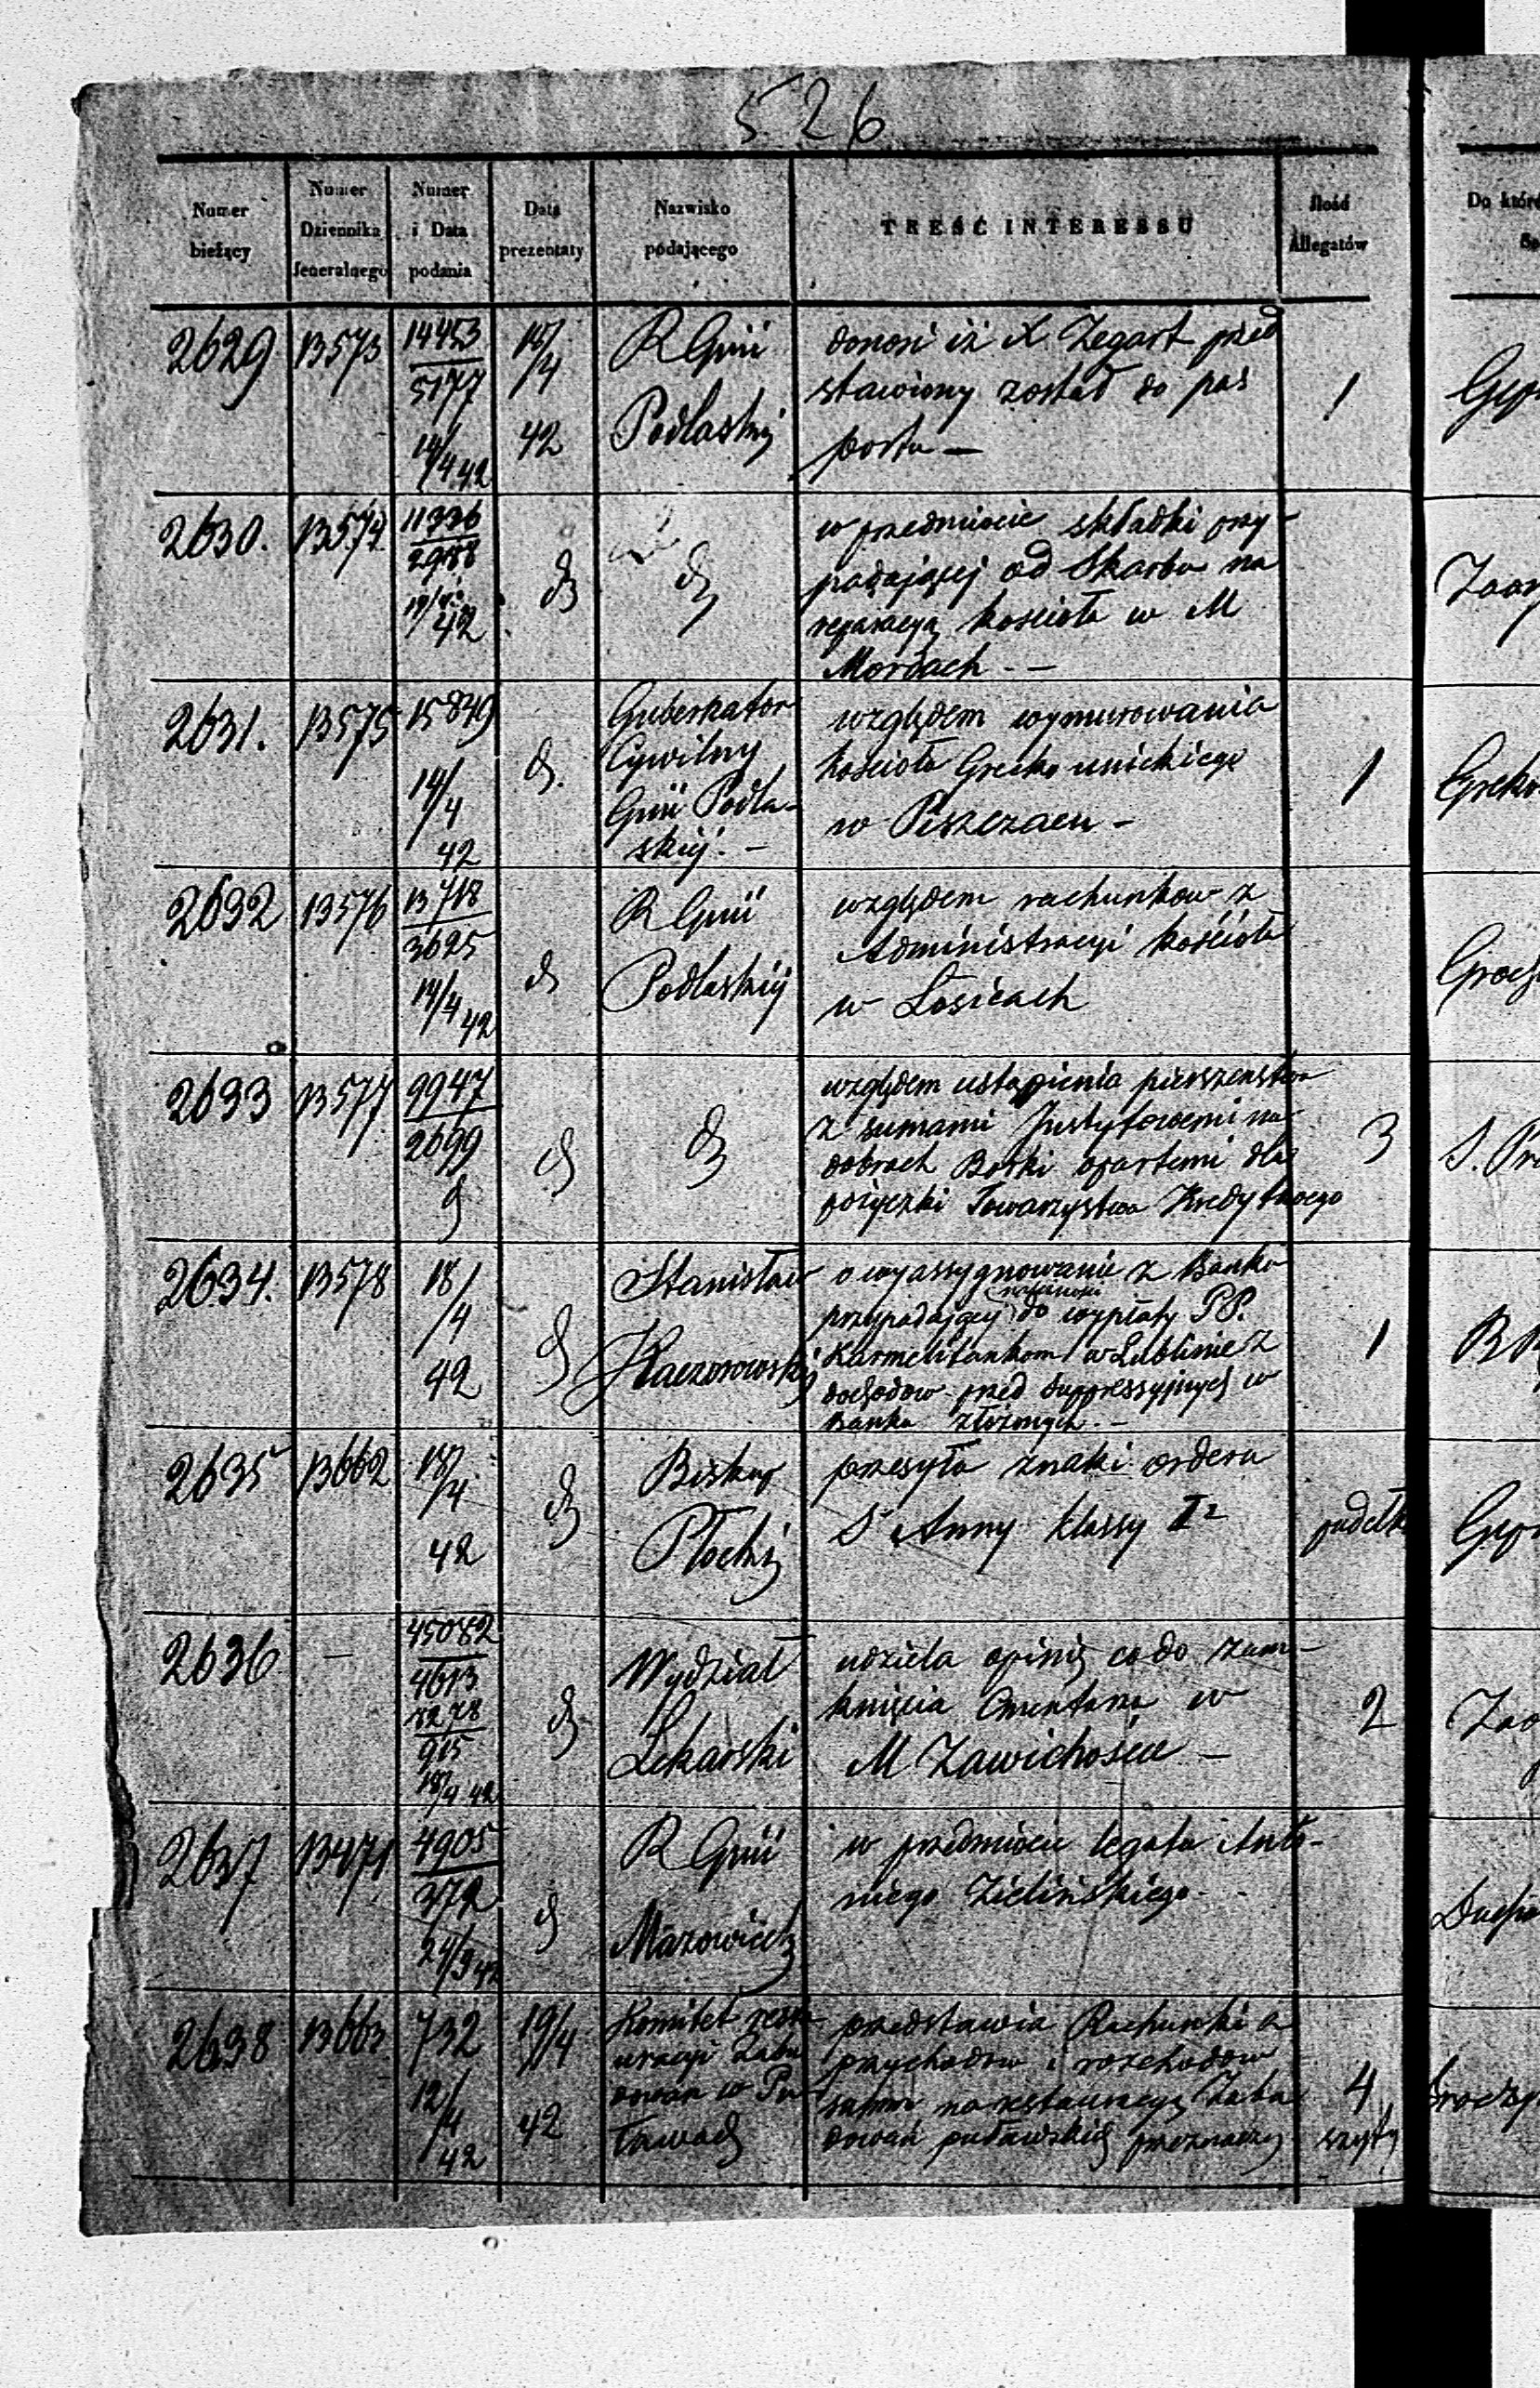 526
Numer bieżący
Numer Dziennika Jeneralnego
Numer i Data podania
Data prezentaty
Nazwisko podającego
TREŚĆ INTERESSU
Ilość Allegatów
Do które
2629 13573 14453 5177 14/4 42
18/4 42
R Gnii Podlaskij
donosi iż X. Zegart przed
stawiony został do pas
portu —
1
2630. 13574 11336 2988 42
R
w przedmiocie składki przy-
padającej od Skarbu na
reparacyą kościoła w M
Mordach. —
2631. 13575 15849 14/4 42
Gubernator
Cywilny
Gnii Podla-
skiej. —
względem wymurowania
kościoła Grecko unickiego
w Piszczacu —
1
2632 13576 13718 3625 14/4 42
R Gnii
Podlaskiej
względem rachunków z
Administracyi kościoła
w Łosicach
2633 13577 9947 2699
względem ustąpienia pierszenstwa
z sumami Instytowemi na
dobrach Borki opartemi dla
pożyczki Towarzystwa Kredytowego
3
2634. 13578 18/4 42
Stanisław
Kaczorowski
o wyassygnowanie z Banku
przypadającej do wypłaty PP.
Karmelitankom w Lublinie z
dochodow przed suppressyjnych w
Banku złożonych. —
1
2635 13662 18/4 42
Biskup
Płocki
przesyła znaki ordera
S Anny klassy II
pudełko
2636 — 45082 4613 8278 915 18/4 42
Wydział
Lekarski
udziela opinię co do zam-
knięcia Cmentarza w
M Zawichoście —
2
2637 13471 4905 372 24/3 42
R Gnii
Mazowieck
w przedmiocie legatu Anto-
niego Zielińskiego.
2638 13663 732 12/4 42
19/4 42
Komitet resta
uracyi Zabu
dowań w Pu
ławach
przedstawia Rachunki
przychodow i rozchodow
summ na restauracyą Zabu
dowań puławskich przeznaczo
4
szyty